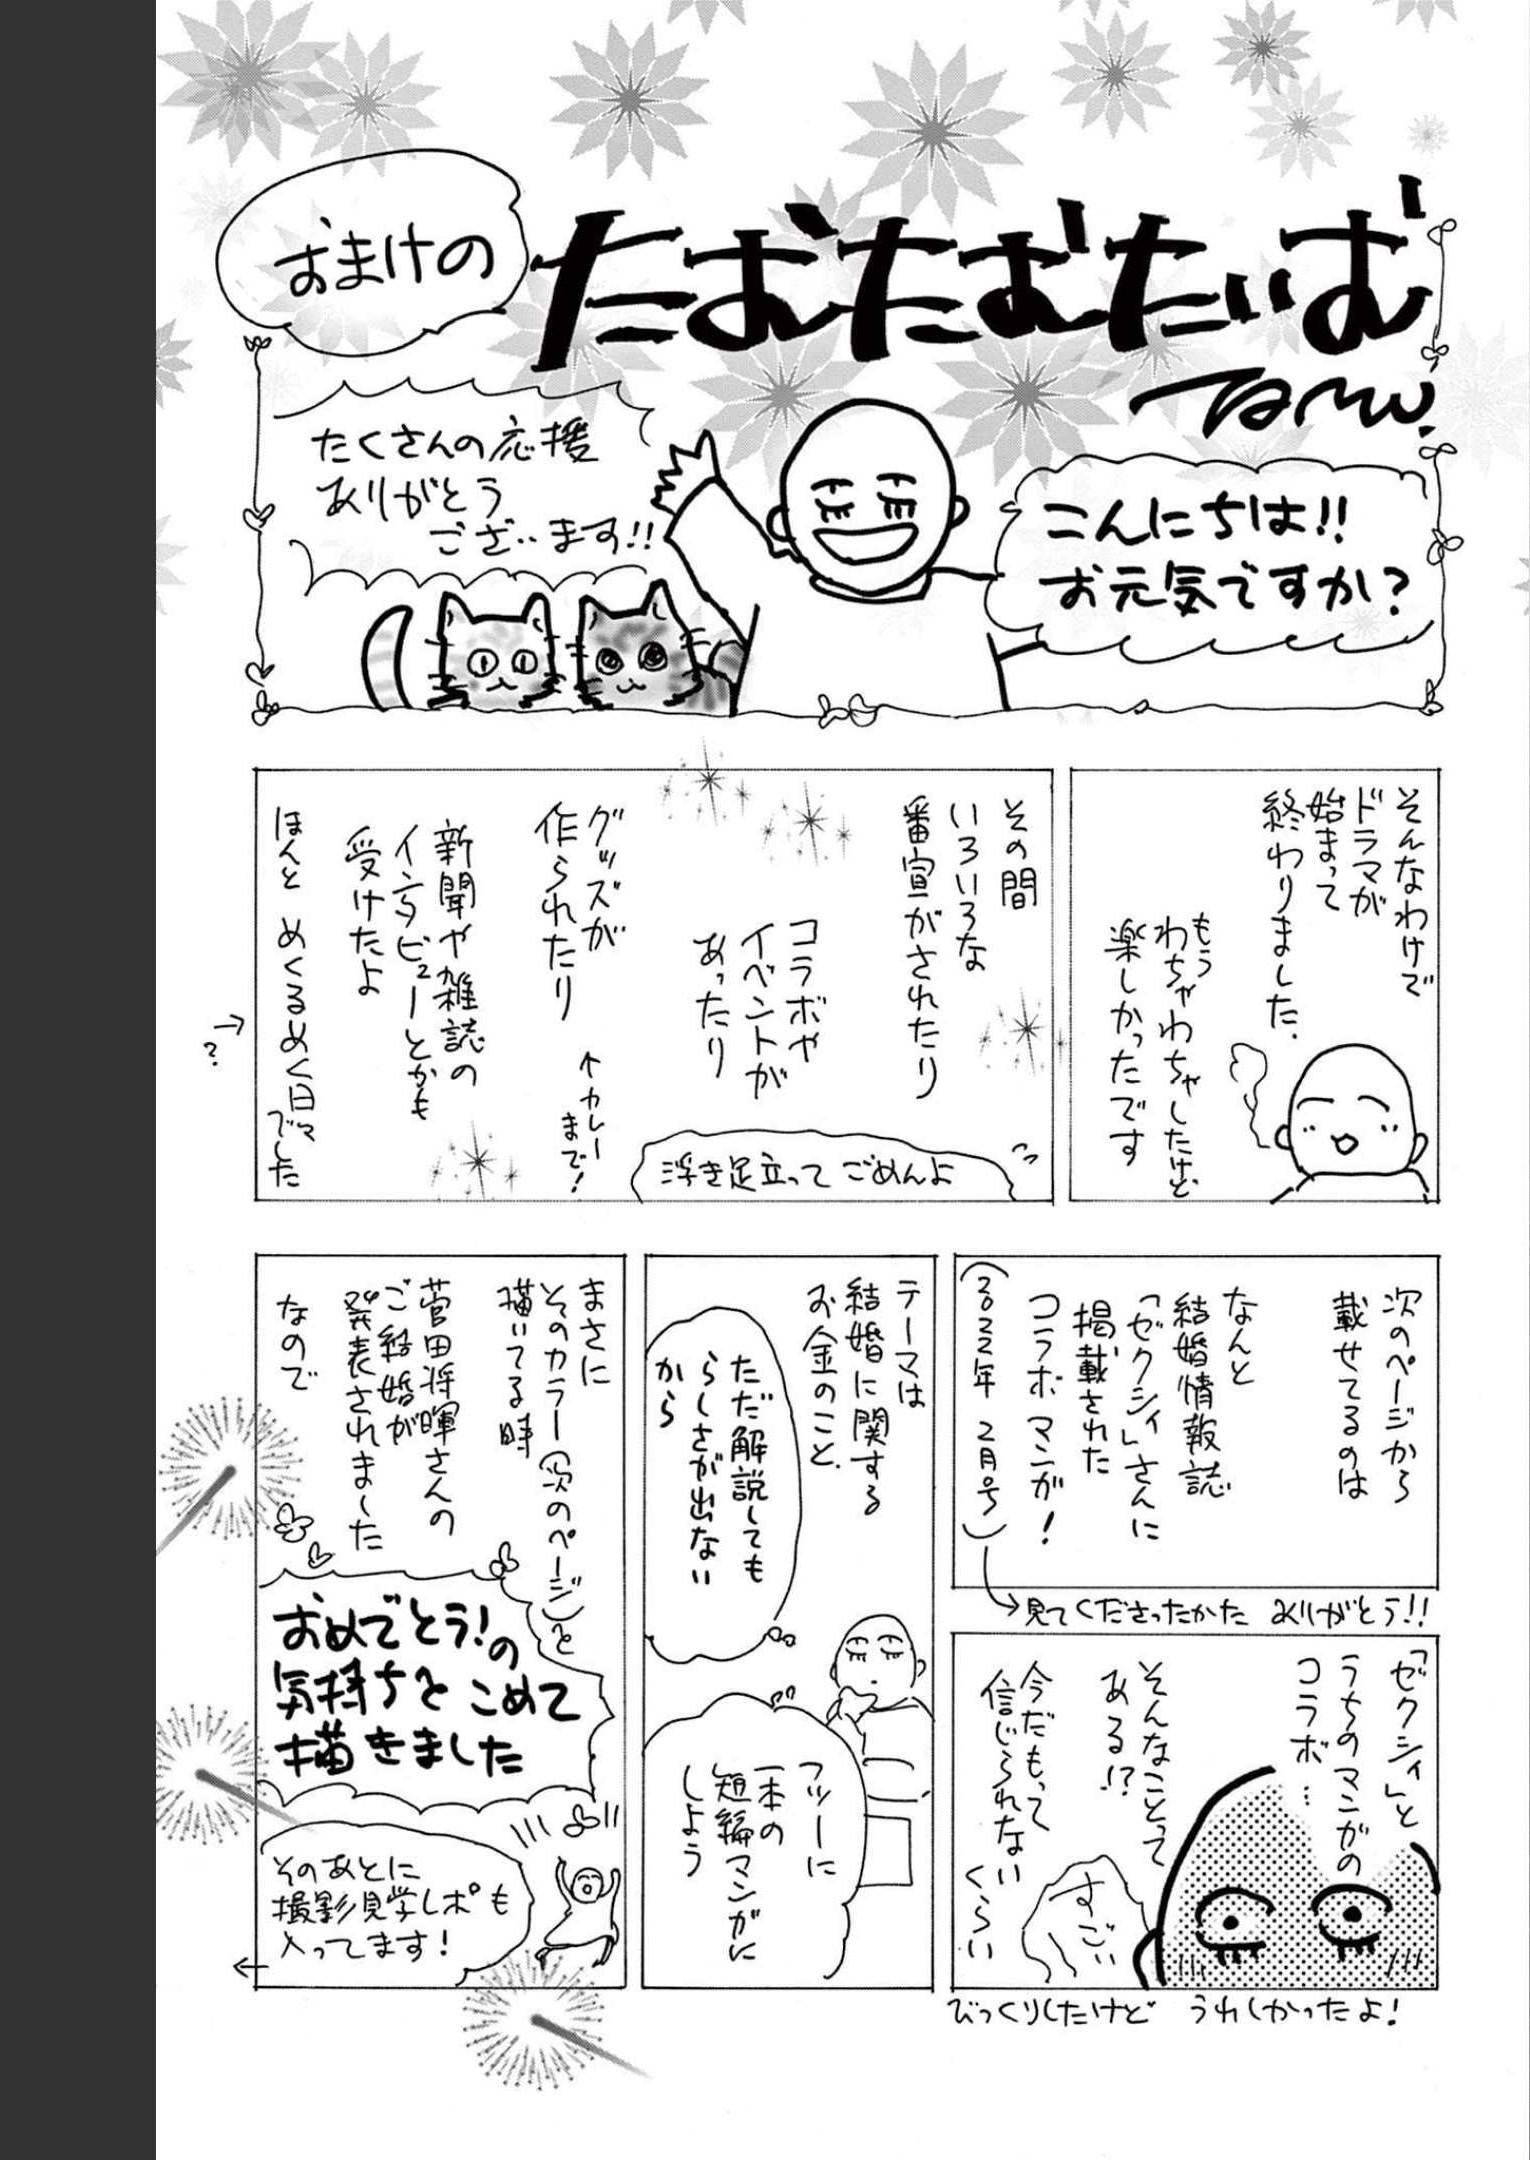 おまけの
たむたむたいむ
TAMU.
こんにちは!!
お元気ですか?
たくさんの応援
ありがとう
ございます!!
そんなわけで
ドラマが
始まって
終わりました.
もう
わちゃわちゃしたけど
楽しかったです
その間
いろいろな
番宣がされたり
コラボや
イベントが
あったり
グッズが
作られたり
↑カレー
まで!
新聞や雑誌の
インタビューとかも
受けたよ
ほんと めくるめく日々
でした
→
?
浮き足立って ごめんよ
次のページから
載せてるのは
なんと
結婚情報誌
「ゼクシィ」さんに
掲載された
コラボマンガ!
(2022年 2月号)
→見てくださったかた ありがとう!!
「ゼクシィ」と
うちのマンガの
コラボ…
そんなことって
ある!?
今だもって
信じられない
くらい
すごい
びっくりしたけど うれしかったよ!
テーマは
結婚に関する
お金のこと.
ただ解説しても
らしさが出ない
から
フツーに
一本の
短編マンガに
しよう
まさに
そのカラー(次のページ)を
描いてる時
菅田将暉さんの
ご結婚が
発表されました
なので
おめでとう!の
気持ちをこめて
描きました
そのあとに
撮影見学レポも
入ってます!
←